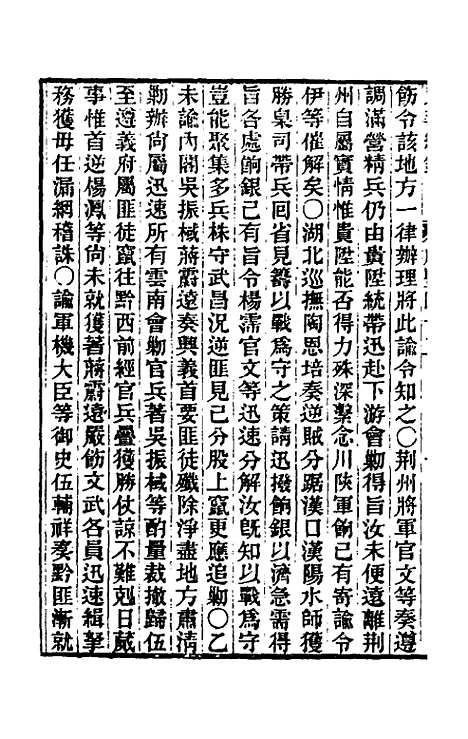 飭令該地方一律辦理將此諭令知之〇荆州將軍官文等奏遵
調滿營精兵仍由貴陞統帶迅赴下游會勦得旨汝未便遠離荆
州自屬實情惟貴陞能否得力殊深繫念川陝軍餉已有寄諭令
伊等催解矣〇湖北巡撫陶恩培奏逆賊分踞漢口漢陽水師獲
勝臬司帶兵回省見籌以戰爲守之策請迅撥餉銀以濟急需得
旨各處餉銀已有旨令楊霈官文等迅速分解汝旣知以戰爲守
豈能聚集多兵株守武昌況逆匪見已分股上竄更應追勦〇乙
未諭內閣吳振棫蔣霨遠奏興義首要匪徒殲除淨盡地方肅清
勦辦尙屬迅速所有雲南會勦官兵著吳振棫等酌量裁撤歸伍
至遵義府屬匪徒竄往黔西前經官兵疊獲勝仗諒不難剋日蕆
事惟首逆楊漋等尙未就獲著蔣霨遠嚴飭文武各員迅速緝拏
務獲毋任漏網稽誅〇諭軍機大臣等御史伍輔祥奏黔匪漸就